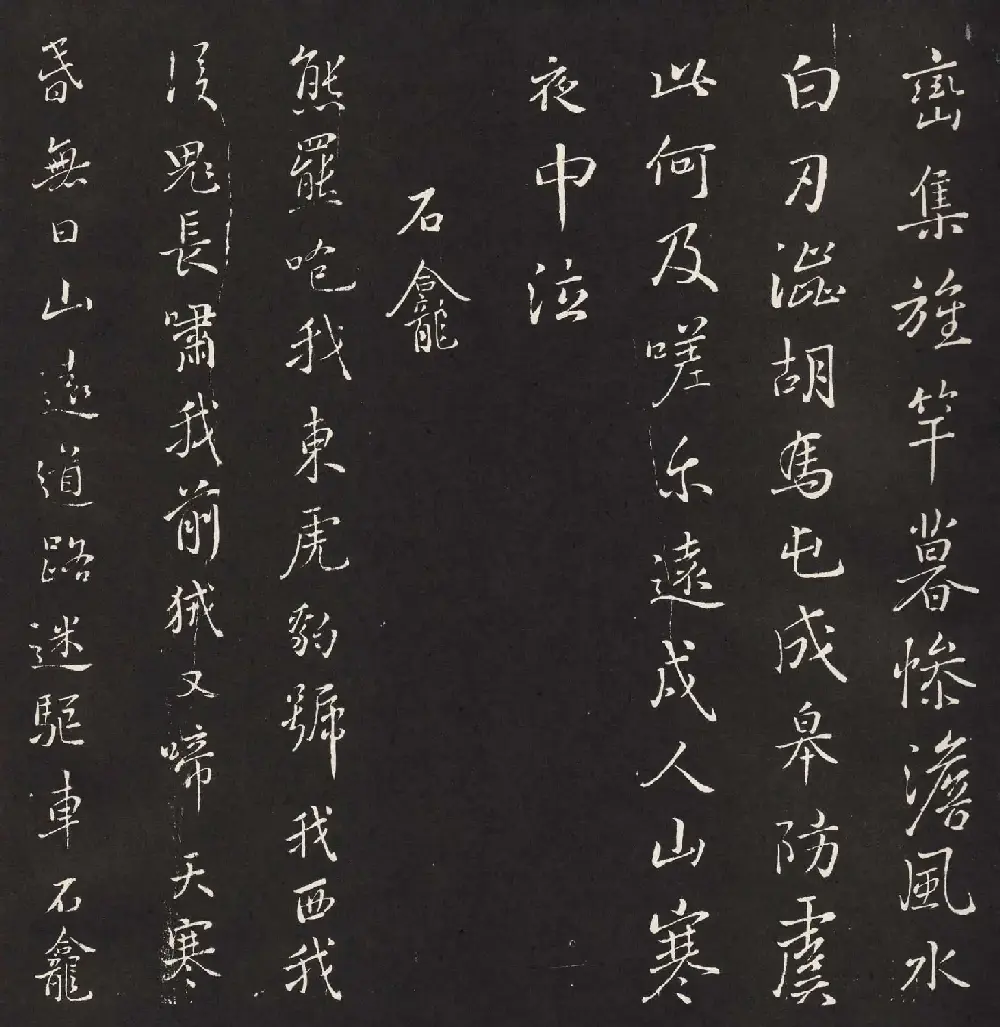 巒集旌竿暮慘澹風水
白刃澁胡馬屯成皋防虞
此何及嗟尔遠戍人山寒
夜中泣
石龕
熊羆咆我東虎豹號我西我
後鬼長嘯我前狨又啼天寒
昏無日山遠道路迷驅車石龕